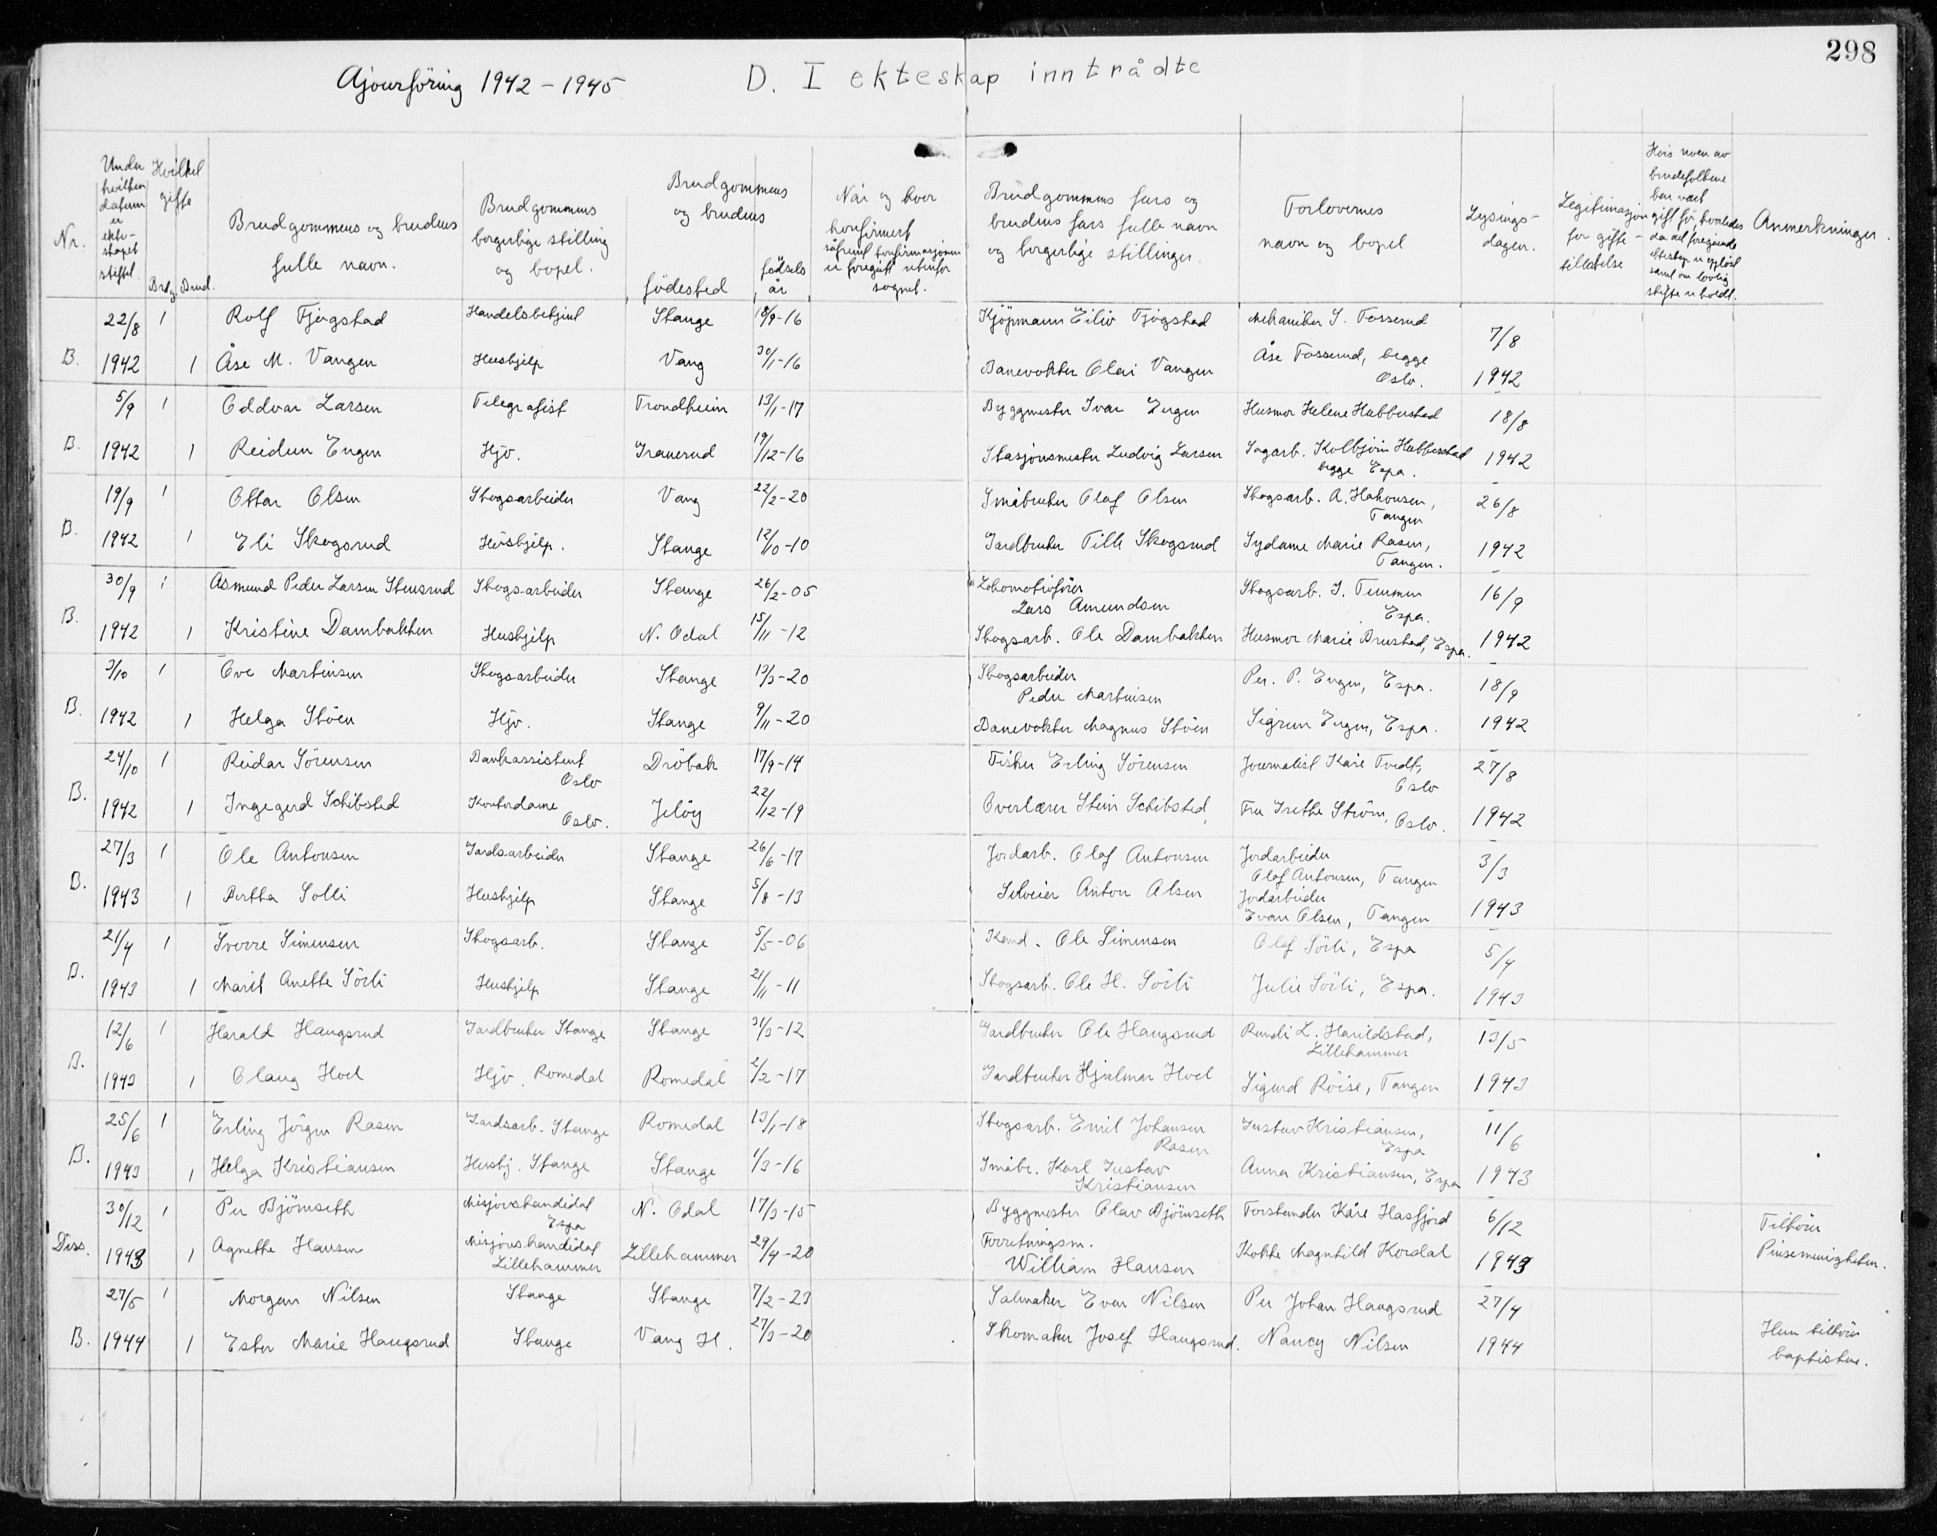 298
Ajourföring 1942 - 1945 D. I ekteskap inntrådte
Nr.
Under hvilken datum er ekte-skapet stiftet.
Hvilket gifte
Brdg. Brud.
Brudgommens og brudens fulle navn.
Brudgommens borgerlige stilling og bopel.
Brudgommens og brudens
födested
födsels år
Når og hvor konfirmert såfremt konfirmasjonen er foregått utenfor sognet.
Brudgommens fars og brudens fars fulle navn og borgerlige stillinger.
Forlovernes navn og bopel
Lysings-dagen.
Legitimasjon for gifte-tillatelse
Hvis noen av brudefolkene har vært gift för, hvorledes da det foregående ekteskap er opplöst samt om lovlig skifte er holdt.
Anmerkninger.
22/8 1 Rolf Fjogstad Handelsbetjent Stange 18/9-16 Kjöpmann Eiliv Fjogstad Mekaniker S. Fosserud 7/8
B. 1942 1 Åse M. Vangen Hushjelp Vang 30/1-16 Banevokter Olai Vangen Åse Fosserud, begge Oslo. 1942
5/9 1 Oddvar Larsen Telegrafist Trondheim 13/1-17 Byggmester Ivar Engen Husmor Helene Hubbestad 18/8
B. 1942 1 Reidun Engen Hjv. Granerud 19/12-16 Stasjonsmester Ludvig Larsen Sagarb. Kolbjörn Hubbestad begge Espa. 1942
19/9 1 Ottar Olsen Skogsarbeider Vang 22/2-20 Småbruker Olaf Olsen Skogsarb. A. Hakonsen, Tangen 26/8
B. 1942 1 Eli Skogsrud Hushjelp. Stange 12/10-10 Gardbruker Skogsrud Sydame Marie Rasen, Tangen. 1942
30/9 1 Asmund Peder Larsen Stensrud Skogsarbeider Stange 26/2-05 Lokomotivförer Lars Amundsen Skogsarb. Espa. 16/9
B. 1942 1 Kristine Dambakken Hushjelp N. Odal 15/11-12 Skogsarb. Ole Dambakken Husmor Marie Brustad, Espa. 1942
3/10 1 Ove Martinsen Skogsarbeider Stange 13/3-20 Skogsarbeider Peder Martinsen Per. P. Engen, Espa. 18/9
B. 1942 1 Helga Stöen Hjv. Stange 9/11-20 Banevokter Magnus Stöen Sigrun Engen, Espa. 1942
24/10 1 Reidar Sörensen Bankassistent Oslo Dröbak 17/9-14 Fisker Erling Sörensen Journalist Kåre Tvedt, Oslo 27/8
B. 1942 1 Ingegerd Schibsted Kontordame Oslo. Jelöy 22/12-19 Overlærer Stein Schibsted, Fru Grethe Ström, Oslo. 1942
27/3 1 Ole Antonsen Gardsarbeider Stange 26/6-17 Jordarb. Olaf Antonsen Jordarbeider Olaf Antonsen, Tangen 3/3
B. 1943 1 Bertha Solli Hushjelp Stange 5/8-13 Anton Olsen Jordarbeider Evan Olsen, Tangen 1943
21/4 1 Sverre Simensen Skogsarb. Stange 5/5-06 Ole Simensen Olaf Sörli, Espa 5/4
B. 1943 1 Marit Anette Sörli Hushjelp Stange 21/11-11 Skogsarb. Ole H. Sörli Julie Sörli, Espa. 1943
12/6 1 Harald Haugsrud Gardbruker Stange Stange 31/3-12 Gardbruker Ole Haugsrud Randi L. Harildstad, Lillehammer 13/5
B. 1943 1 Olaug Hoel Hjv. Romedal Romedal 2/2-17 Gardbruker Hjalmar Hoel Sigurd Röise, Tangen 1943
25/6 1 Erling Jörgen Rasen Gardsarb. Stange Romedal 13/1-18 Skogsarb. Emil Johansen Rasen Gustav Kristiansen, Espa 11/6
B. 1943 1 Helga Kristiansen Hushj. Stange Stange 1/3-16 Småbr. Karl Gustav Kristiansen Anna Kristiansen, Espa 1943
30/12 1 Per Björnseth Misjonskandidat Espa N. Odal 17/3-15 Byggmester Olav Björnseth Forstander Kåre Hasfjord 6/12 Tilhörer
Diss. 1943 1 Agnethe Hansen Misjonskandidat Lillehammer Lillehammer 29/4-20 Forretningsm. William Hansen Kokke Magnhild Kordal 1943 Pinsemenigheten.
27/5 1 Morgan Nilsen Stange Stange 7/2-23 Salmaker Even Nilsen Per Johan Haugsrud 27/4
B. 1944 1 Ester Marie Haugsrud Stange Vang H. 27/3-20 Skomaker Josef Haugsrud. Nancy Nilsen 1944 Hun tilhörer baptistene.